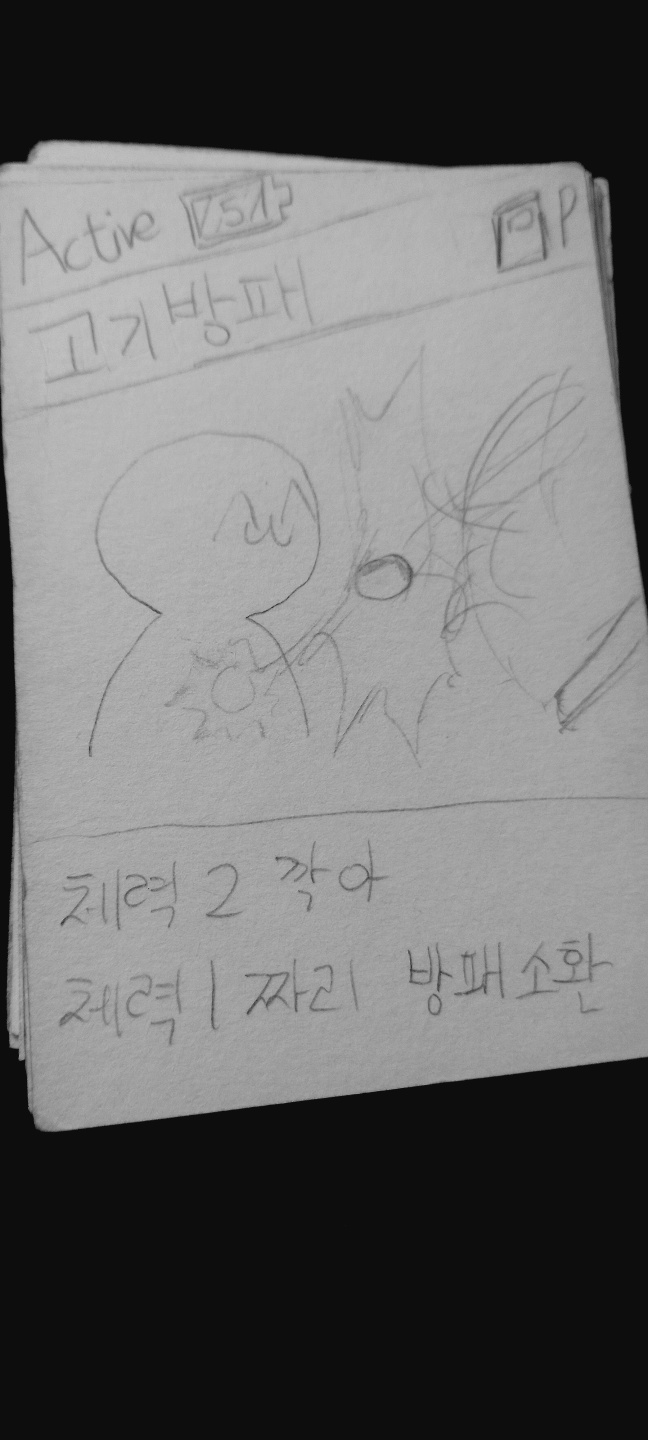 Active P
고기방패
체력 2 깍아
체력 1 짜리 방패 소환